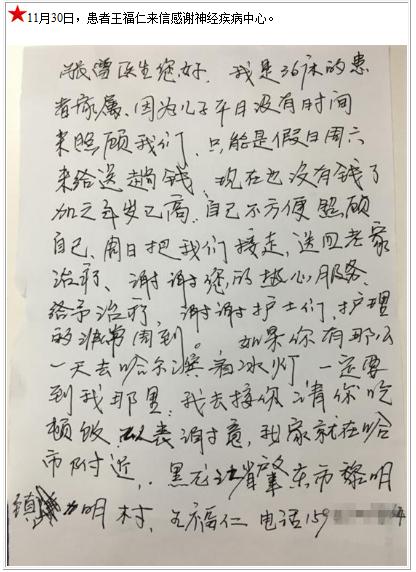 ★11月30日，患者王福仁来信感谢神经疾病中心。
敬曾医生您好. 我是36床的患
者家属、因为儿子平日没有时间
来照顾我们、只能是假日周六
来给送趟钱、现在也没有钱了
加之年岁已高. 自己不方便照顾
自己、周日把我们接走, 送回老家
治疗、谢谢您的热心服务、
给予治疗, 谢谢护士们, 护理
的非常周到。 如果你有那么
一天去哈尔滨看冰灯 一定要
到我那里. 我去接你 请你吃
顿饭 以表谢意, 我家就在哈
市附近,. 黑龙江省肇东市黎明
镇 明村, 王福仁 电话159